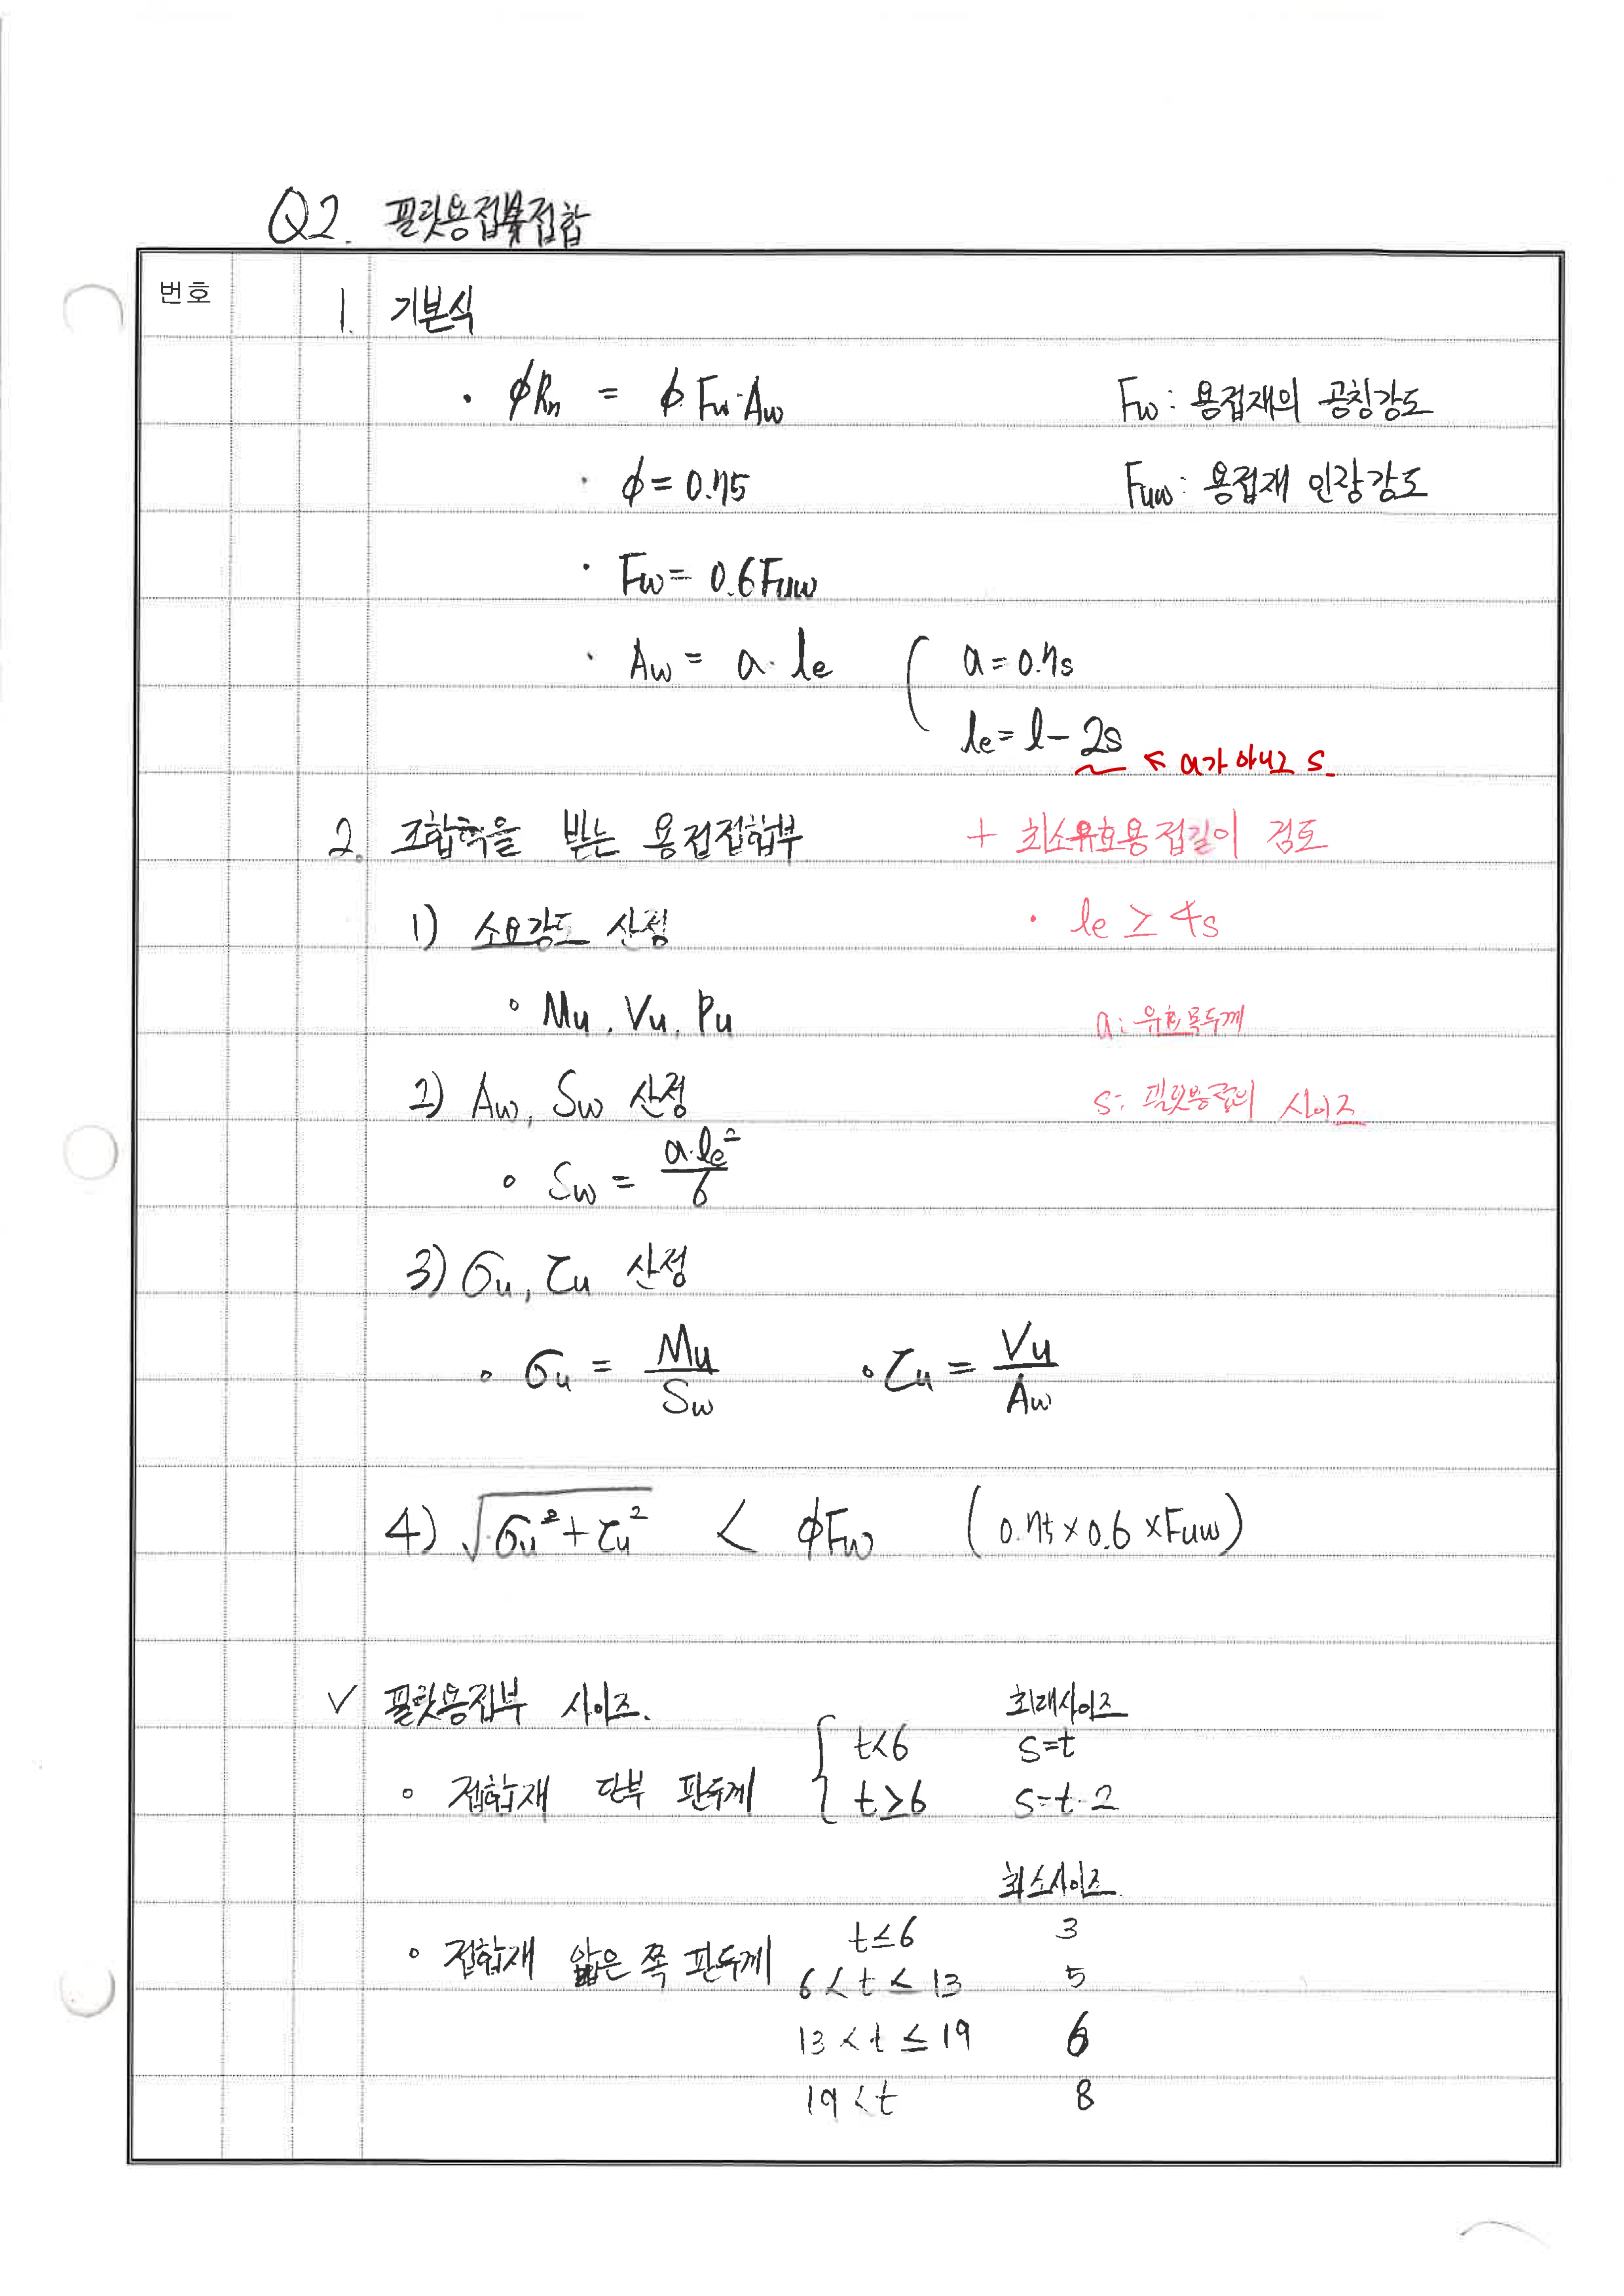 Q2. 필릿용접부접합
번호
1. 기본식
· ϕRn = ϕ Fw·Aw    Fw : 용접재의 공칭강도
· ϕ = 0.75    Fuw : 용접재 인장강도
· Fw = 0.6Fuw
· Aw = a·le ( a = 0.7s
le = l - 2s ↖ a가 아니고 s.
2. 조합력을 받는 용접접합부    + 최소유효용접길이 검토
1) 소요강도 산정    · le ≥ 4s
∘ Mu, Vu, Pu    a : 유효목두께
2) Aw, Sw 산정    s : 필릿용접의 사이즈
∘ Sw = a·le²/6
3) σu, τu 산정
∘ σu = Mu/Sw    ∘ τu = Vu/Aw
4) √(σu² + τu²) < ϕFw (0.75 × 0.6 × Fuw)
✓ 필릿용접부 사이즈.    최대사이즈
{ t<6    s=t
∘ 접합재 단부 판두께    t≥6    s=t-2
최소사이즈.
t≤6    3
∘ 접합재 얇은 쪽 판두께    6 < t ≤ 13    5
13 < t ≤ 19    6
19 < t    8